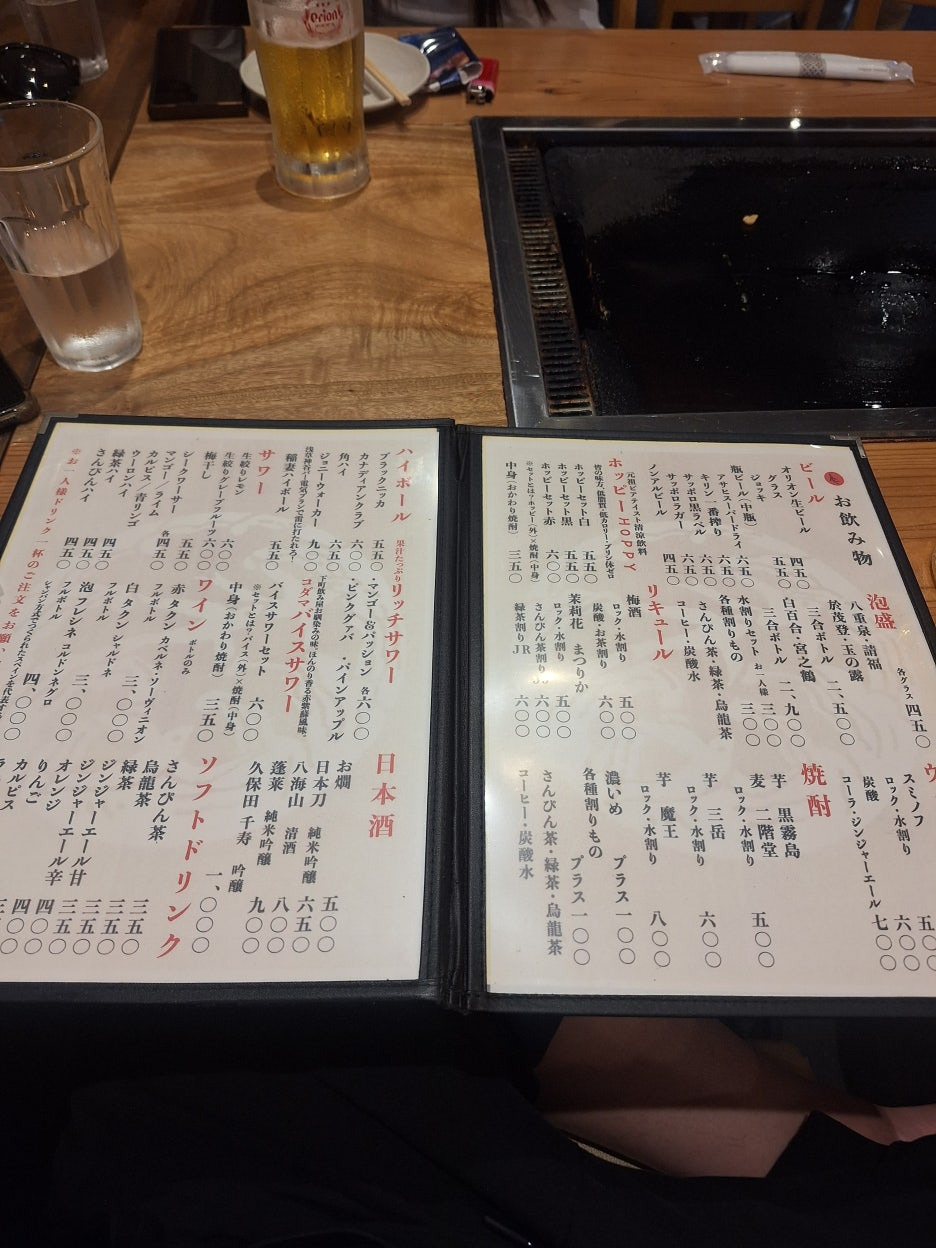 お飲み物
ビール
オリオン生ビール
グラス 四五〇
ジョッキ 五五〇
瓶ビール（中瓶）
アサヒスーパードライ 六五〇
キリン一番搾り 六五〇
サッポロ黒ラベル 六五〇
サッポロラガー 六五〇
ノンアルビール 四五〇
ホッピーHOPPY
元祖ビアテイスト清涼飲料
皆の味方、低糖質・低カロリー・プリン体ゼロ
ホッピーセット白 五五〇
ホッピーセット黒 五五〇
ホッピーセット赤 六〇〇
※セットとは？ホッピー（外）×焼酎（中身）
中身（おかわり焼酎） 三五〇
泡盛 各グラス四五〇
八重泉・請福
於茂登・玉の露
三合ボトル 二、五〇〇
白百合・宮之鶴
三合ボトル 二、九〇〇
水割りセット お一人様 三〇〇
各種割りもの 三〇〇
さんぴん茶・緑茶・烏龍茶
コーヒー・炭酸水
リキュール
梅酒
ロック・水割り 五五〇
炭酸・お茶割り 六〇〇
茉莉花 まつりか
ロック・水割り 五五〇
さんぴん茶割り 六〇〇
緑茶割り JR 六〇〇
スミノフ
ロック・水割り
炭酸 六〇〇
コーラ・ジンジャーエール 七〇〇
焼酎
芋 黒霧島
麦 二階堂
ロック・水割り 五〇〇
芋 三岳
ロック・水割り 六〇〇
芋 魔王
ロック・水割り 八〇〇
濃いめ プラス一〇〇
各種割りもの プラス一〇〇
さんぴん茶・緑茶・烏龍茶
コーヒー・炭酸水
ハイボール
ブラックニッカ 五五〇
カナディアンクラブ 六〇〇
角ハイ 六五〇
ジョニーウォーカー 九〇〇
浅草神谷バー電気ブランで雷に打たれろ！
稲妻ハイボール 五五〇
サワー
生絞りレモン 六〇〇
生絞りグレープフルーツ 六〇〇
梅干し 五五〇
シークワーサー
マンゴー／ライム
カルピス／青リンゴ 各四五〇
ウーロンハイ
緑茶ハイ 四五〇
さんぴんハイ 四五〇
※お一人様ドリンク一杯のご注文をお願い
果汁たっぷりリッチサワー
・マンゴー&パッション 各六〇〇
・ピンクグァバ ・パインアップル
下町飲み屋お馴染みの味、ほんのり香る赤紫蘇風味。
コダマバイスサワー
バイスサワーセット 六〇〇
※セットとは？バイス（外）×焼酎（中身）
中身（おかわり焼酎） 三五〇
ワイン ボトルのみ
赤 タクン カベルネ・ソーヴィニオン
フルボトル 三、〇〇〇
白 タクン シャルドネ
フルボトル 三、〇〇〇
泡 フレシネ コルドンネグロ
フルボトル 四、〇〇〇
日本酒
お燗 五〇〇
日本刀 純米吟醸 六五〇
八海山 清酒 八〇〇
蓬莱 純米吟醸 九〇〇
久保田 千寿 吟醸 一、〇〇〇
ソフトドリンク
さんぴん茶 三五〇
烏龍茶 三五〇
緑茶 三五〇
ジンジャーエール甘 三五〇
ジンジャーエール辛 四〇〇
オレンジ 四〇〇
りんご
カルピス